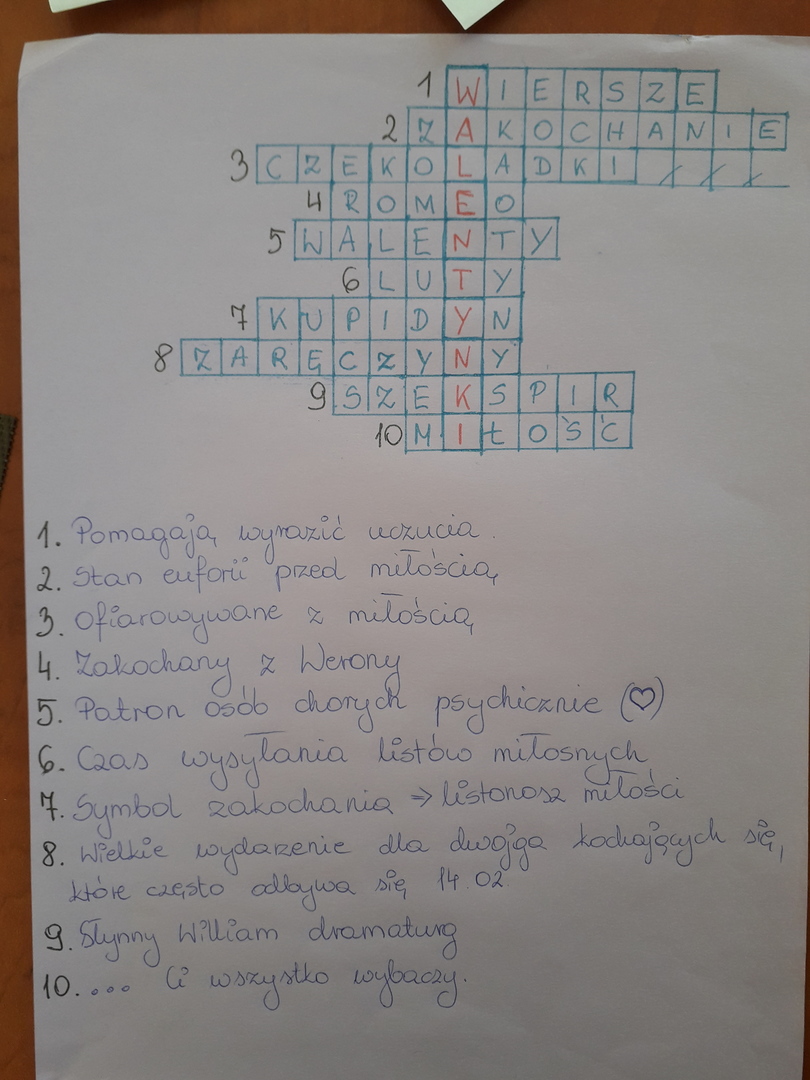 1 WIERSZE
2 ZAKOCHANIE
3 CZEKOLADKI
4 ROMEO
5 WALENTY
6 LUTY
7 KUPIDYN
8 ZARĘCZYNY
9 SZEKSPIR
10 MIŁOŚĆ
1. Pomagają wyrazić uczucia.
2. Stan euforii przed miłością
3. Ofiarowywane z miłością
4. Zakochany z Werony
5. Patron osób chorych psychicznie (♡)
6. Czas wysyłania listów miłosnych
7. Symbol zakochania → listonosz miłości
8. Wielkie wydarzenie dla dwojga kochających się,
które często odbywa się 14.02
9. Słynny William dramaturg
10. .... Ci wszystko wybaczy.